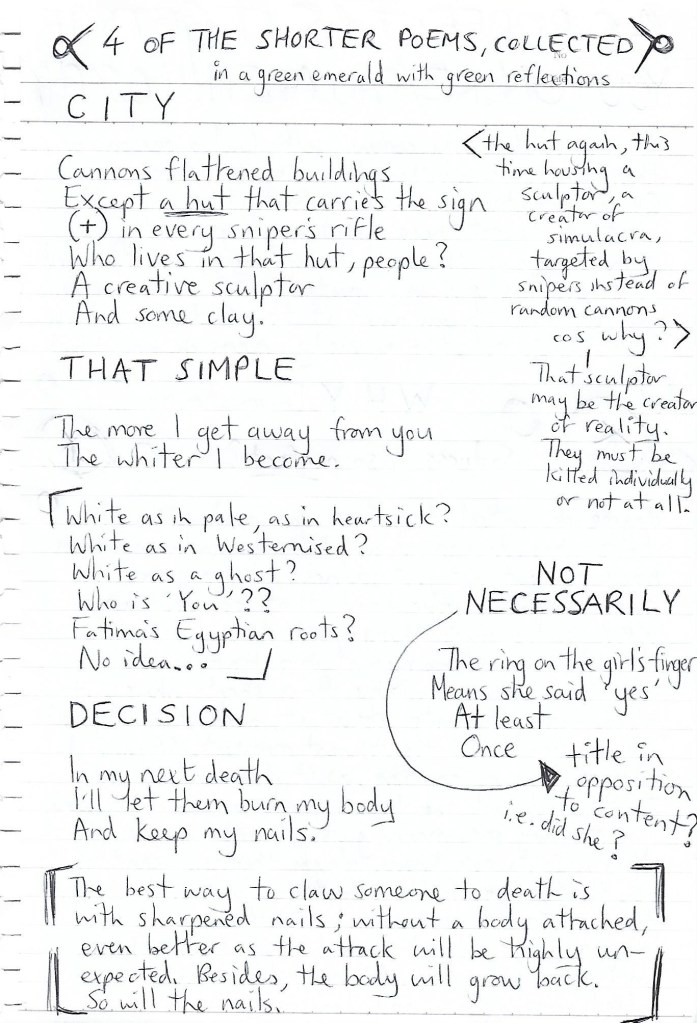 4 OF THE SHORTER POEMS, COLLECTED
in a green emerald with green reflections
CITY
Cannons flattened buildings
Except a hut that carries the sign
(+) in every sniper's rifle
Who lives in that hut, people?
A creative sculptor
And some clay.
<the hut again, this
time housing a
sculptor, a
creator of
simulacra,
targeted by
snipers instead of
random cannons
cos why?>
That sculptor
may be the creator
of reality.
They must be
killed individually
or not at all.
THAT SIMPLE
The more I get away from you
The whiter I become.
White as in pale, as in heartsick?
White as in Westernised?
White as a ghost?
Who is 'You'??
Fatima's Egyptian roots?
No idea...
NOT
NECESSARILY
The ring on the girl's finger
Means she said 'yes'
At least
Once
title in
opposition
to content?
i.e. did she?
DECISION
In my next death
I'll let them burn my body
And keep my nails.
The best way to claw someone to death is
with sharpened nails; without a body attached,
even better as the attack will be highly un-
expected. Besides, the body will grow back.
So will the nails.